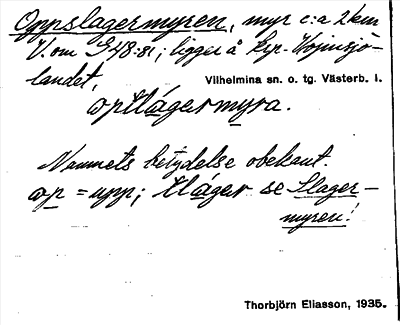 Oppslagermyren, myr c:a 2 km
V. om S48:81; ligger å kp.
landet,
Vilhelmina sn. o. tg. Västerb. l.
opslágermyra.
Namnets betydelse obekant.
op = upp; sláger se Slager-
myren!
Thorbjörn Eliasson, 1935.